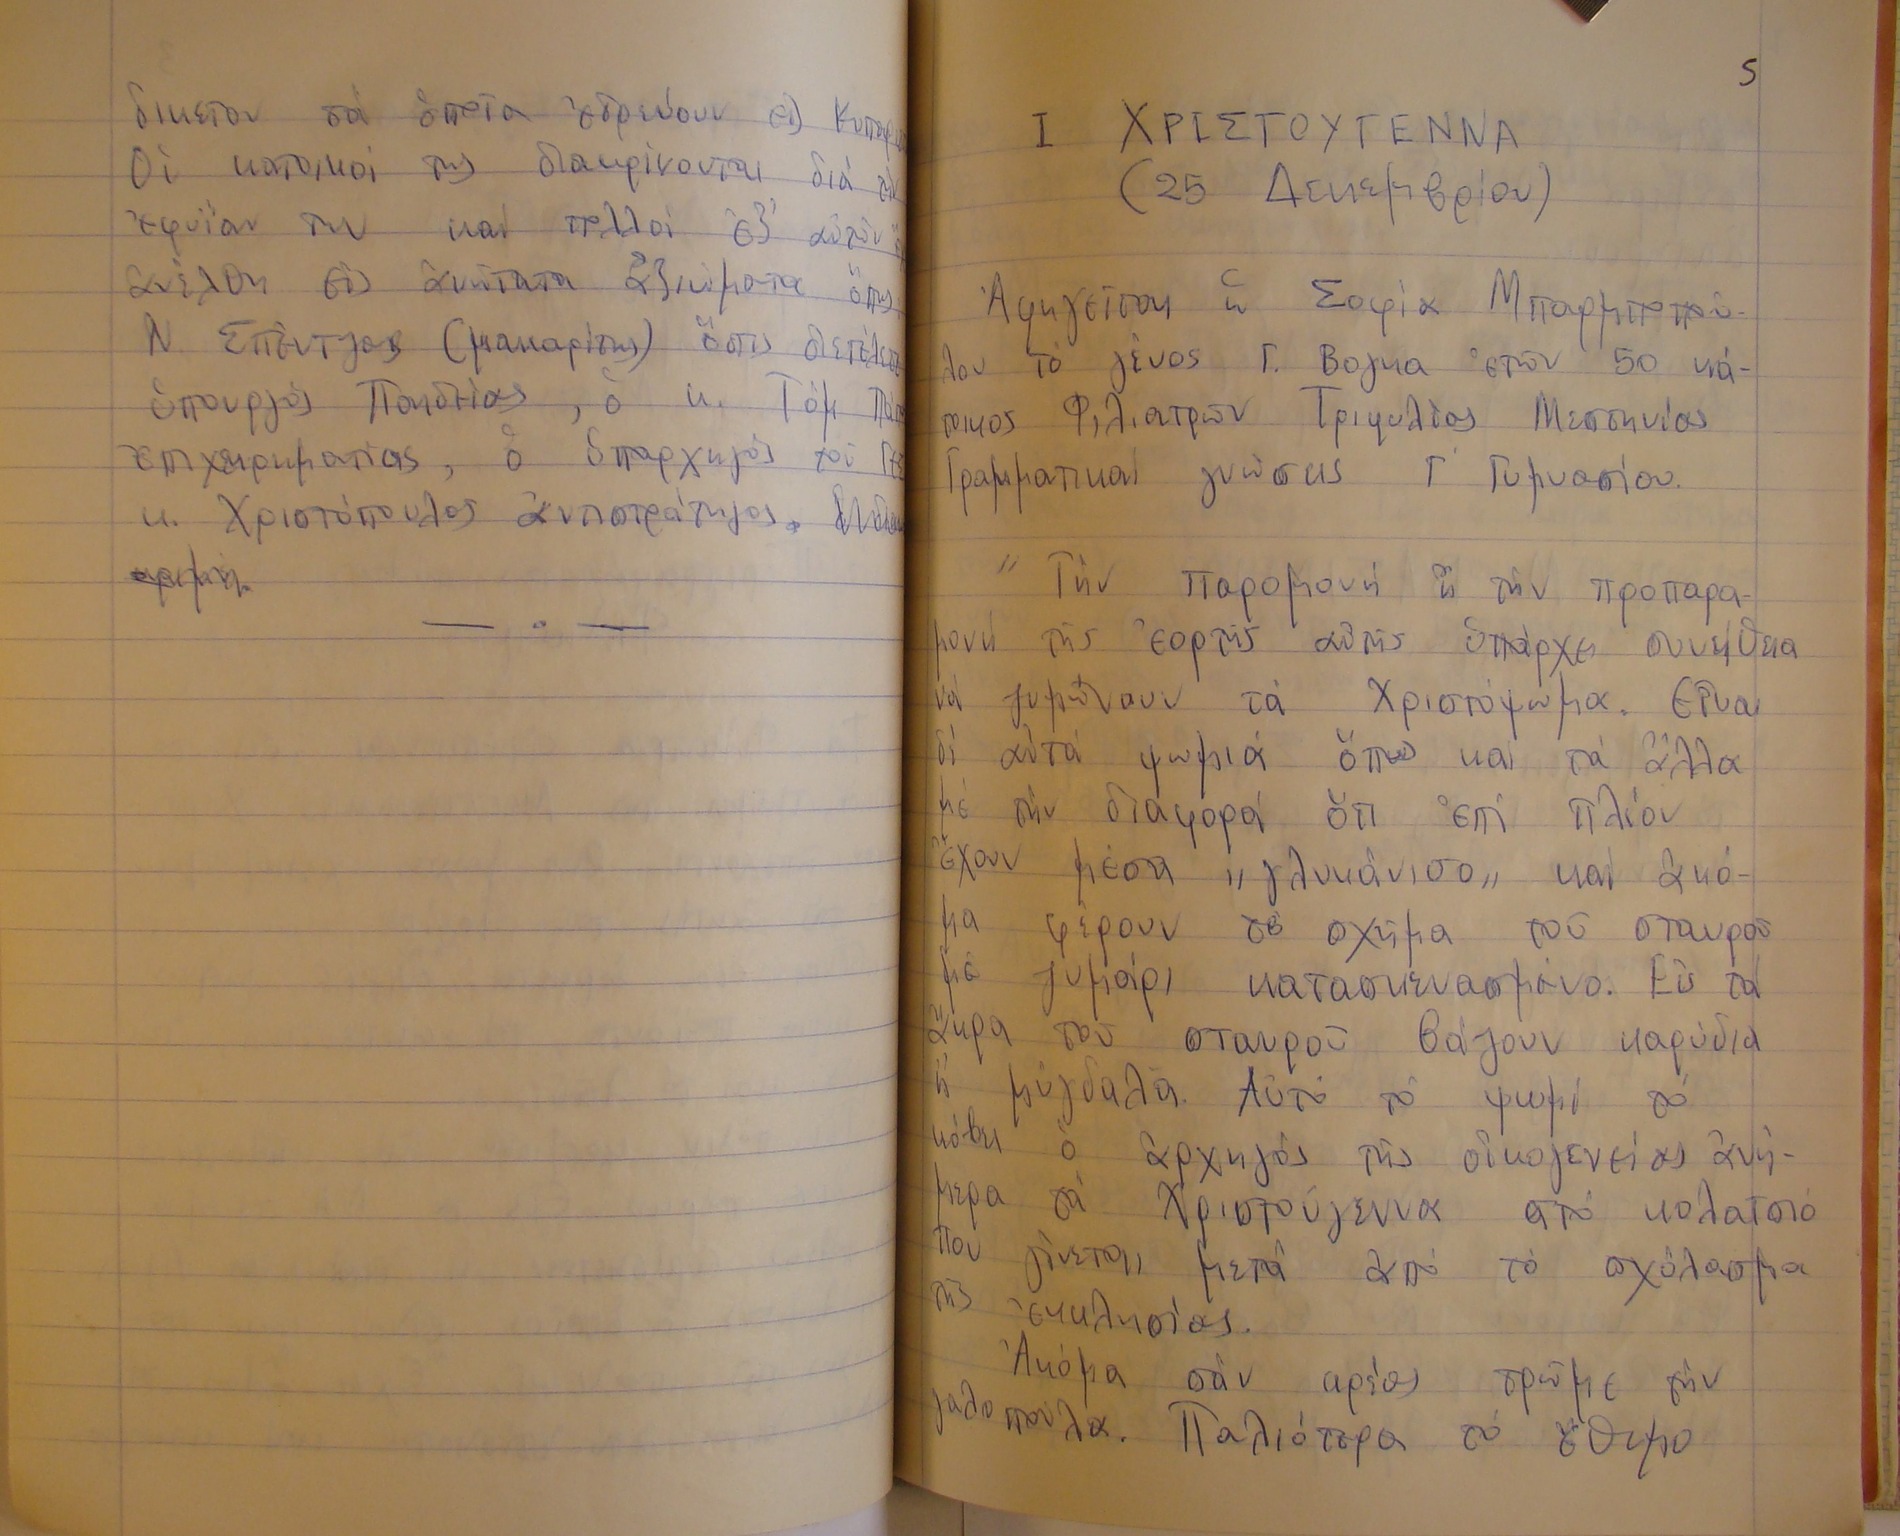 δικείον τά ὁποῖα ἑδρεύουν εἰς
Οἱ κατοικοί της διακρίνονται διά τήν
εφυΐαν των καί πολλοί ἐξ' αὐτῶν
ἀνέλθη εἰς ἀνώτατα ἀξιώματα ὅπως
Ν. Σπέντζας (μακαρίτης) ὅστις διετέλεσε
ὑπουργός Παιδείας, ὁ κ. Τόμ
ἐπιχειρηματίας, ὁ ὑπαρχηγός τοῦ
κ. Χριστόπουλος ἀντιστράτηγος.
5
Ι ΧΡΙΣΤΟΥΓΕΝΝΑ
(25 Δεκεμβρίου)
Ἀφηγεῖται ἡ Σοφία Μπαρμποπού-
λου τό γένος Γ. Βογκα ἐτῶν 50 κά-
τοικος Φιλιατρῶν Τριφυλίας Μεσσηνίας
Γραμματικαί γνώσεις Γ΄ Γυμνασίου.
" Τήν Παραμονή ἤ τήν προπαρα-
μονή τῆς ἑορτῆς αὐτῆς ὑπάρχει συνήθεια
νά ζυμώνουν τά Χριστόψωμα. Εἶναι
δέ αὐτά ψωμιά ὅπως καί τά ἄλλα
μέ τήν διαφορά ὅτι ἐπί πλέον
ἔχουν μέσα „γλυκάνισο„ καί ἀκό-
μα φέρουν τό σχῆμα τοῦ σταυροῦ
μέ ζυμάρι κατασκευασμένο. Εἰς τά
ἄκρα τοῦ σταυροῦ βάζουν καρύδια
ἤ μύγδαλα. Αὐτό τό ψωμί τό
κόβει ὁ ἀρχηγός τῆς οἰκογενείας ἀνή-
μερα τά Χριστούγεννα στό κολατσιό
πού γίνεται μετά ἀπό τό σχόλασμα
τῆς ἐκκλησίας.
Ἀκόμα σάν κρέας τρῶμε τήν
γαλοπούλα. Παλιότερα τό ἔθιμο